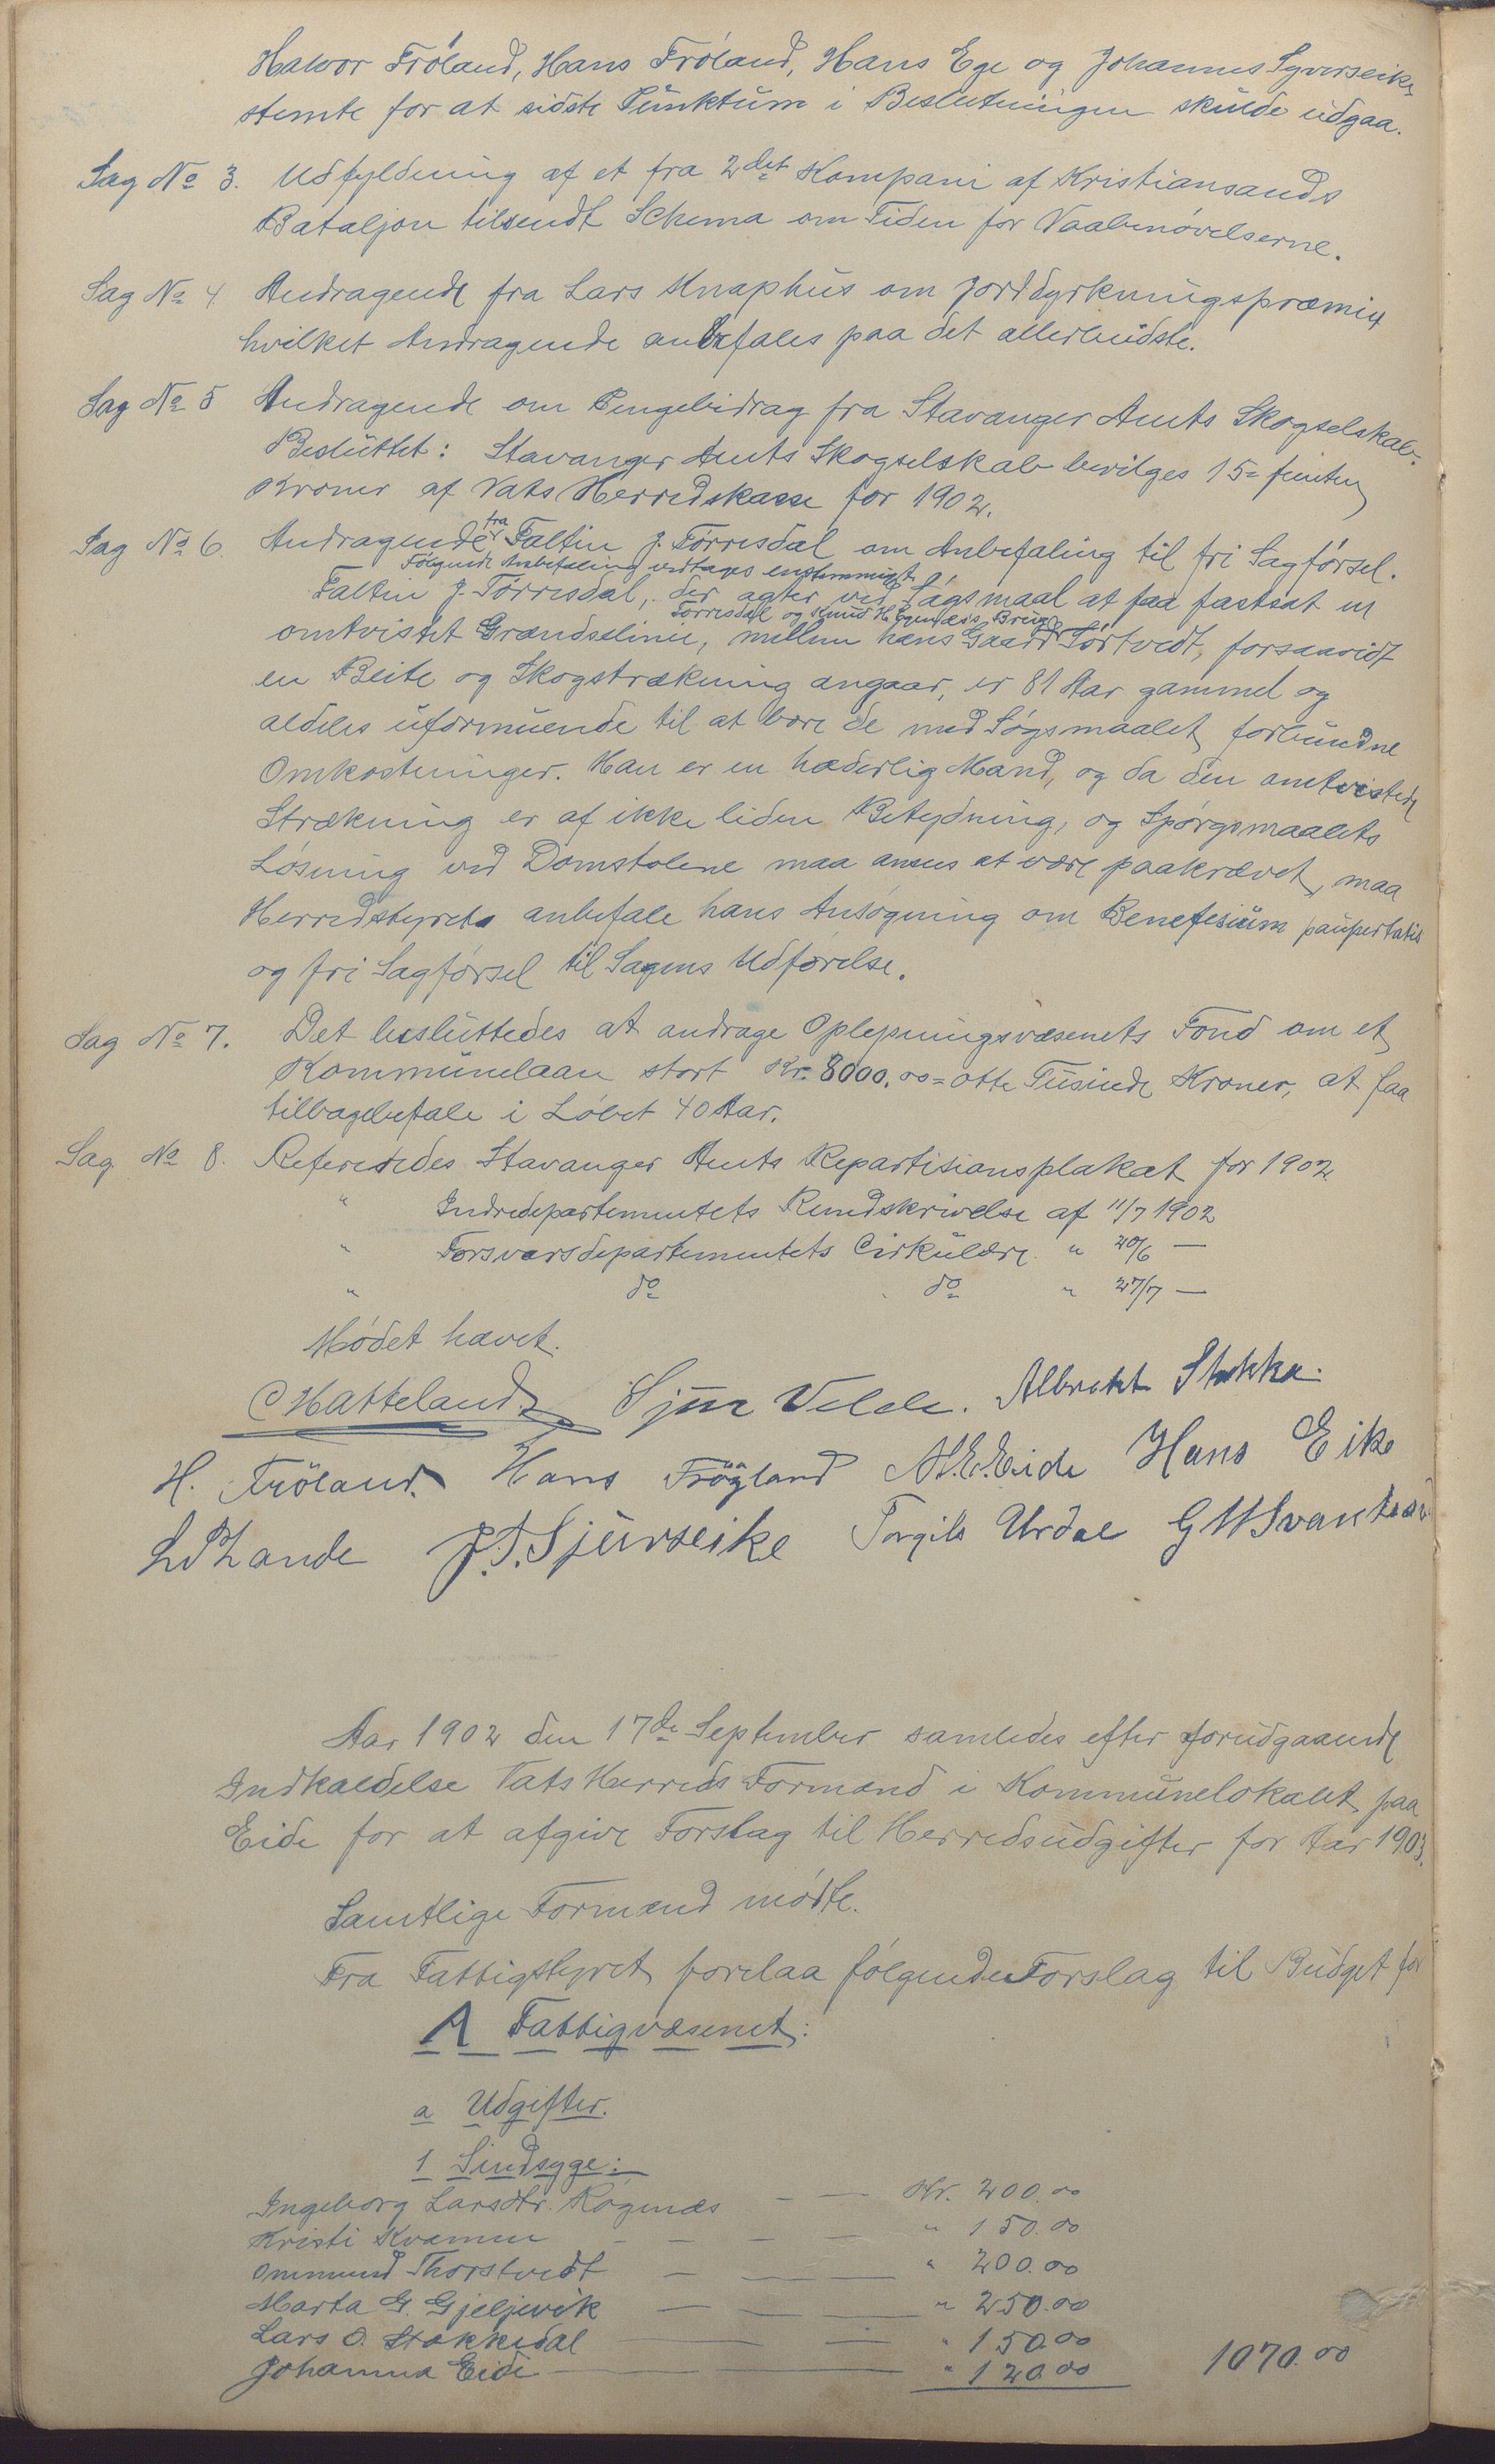 Halvor Fröland, Hans Fröland, Hans Ege og Johannes Syverseike
stemte for at sidste Punktum i Beslutningen skulde udgaa.
Sag No 3. Udfyldning af et fra 2det Kompani af Kristiansands
Bataljon tilsendt Schema om Tiden for Vaabenøvelserne.
Sag No 4. Andragende fra Lars Knaphus om Jorddyrkningspræmie
hvilket Andragende anbefales paa det allerbedste.
Sag No 5 Andragende om Pengebidrag fra Stavanger Amts Skogselskab.
Besluttet: Stavanger Amts Skogselskab bevilges 15 = femten
Kroner af Vats Herredskasse for 1902.
Sag No 6. Andragende fra Faltin J. Törresdal om Anbefaling til fri Sagførsel.
Følgende Anbefaling vedtages enstemmigt
Faltin J. Törresdal, der agter ved Søgsmaal at faa fastsat en
Törresdal og Knud H. Egenæs's Brug
omtvistet Grændselinie, mellem hans Gaard Törtvedt, forsaavidt
en Beite og Skogstrækning angaar, er 81 Aar gammel og
aldeles uformuende til at bære de med Søgsmaalet forbundne
Omkostninger. Han er en hæderlig Mand, og da den omtvistede
Strækning er af ikke liden Betydning, og Spørgsmaalets
Løsning ved Domstolene maa ansees at være paakrævet, maa
Herredstyret anbefale hans Ansøgning om Benefesium paupertatis
og fri Sagførsel til Sagens Udførelse.
Sag No 7. Det besluttedes at andrage Oplysningsvæsenets Fond om et
Kommunelaan stort Kr. 8000.00 = otte Tusinde Kroner, at faa
tilbagebetale i Løbet 40 Aar.
Sag No 8. Refereredes Stavanger Amts Repartisionsplakat for 1902.
" Indredepartementets Rundskrivelse af 11/7 1902
" Forsvarsdepartementets Cirkulære " 20/6 —
" do do " 27/7 —
Mødet hævet.
C Hatteland. Sjur Velde. Albrekt Stokka.
H. Fröland. Hans Frögland A.E. Eide Hans Eike
L Lande J.T. Sjurseike Torgils Urdal G W Svantesd
Aar 1902 den 17de September samledes efter forudgaaende
Indkaldelse Vats Herreds Formænd i Kommunelokalet paa
Eide for at afgive Forslag til Herredsudgifter for Aar 1903.
Samtlige Formænd mødte.
Fra Fattigstyret forelaa følgende Forslag til Budget for
A Fattigvæsenet:
a Udgifter.
1 Sindsyge:
Ingeborg Larsdtr. Røgenæs — — Kr. 200.00
Kristi Kvamen — — — " 150.00
Ommund Thorstvedt — — — " 200.00
Marta G. Gjeljevik — — — " 250.00
Lars O. Stokkedal — — " 150.00
Johanna Eide — — — " 120.00 1070.00